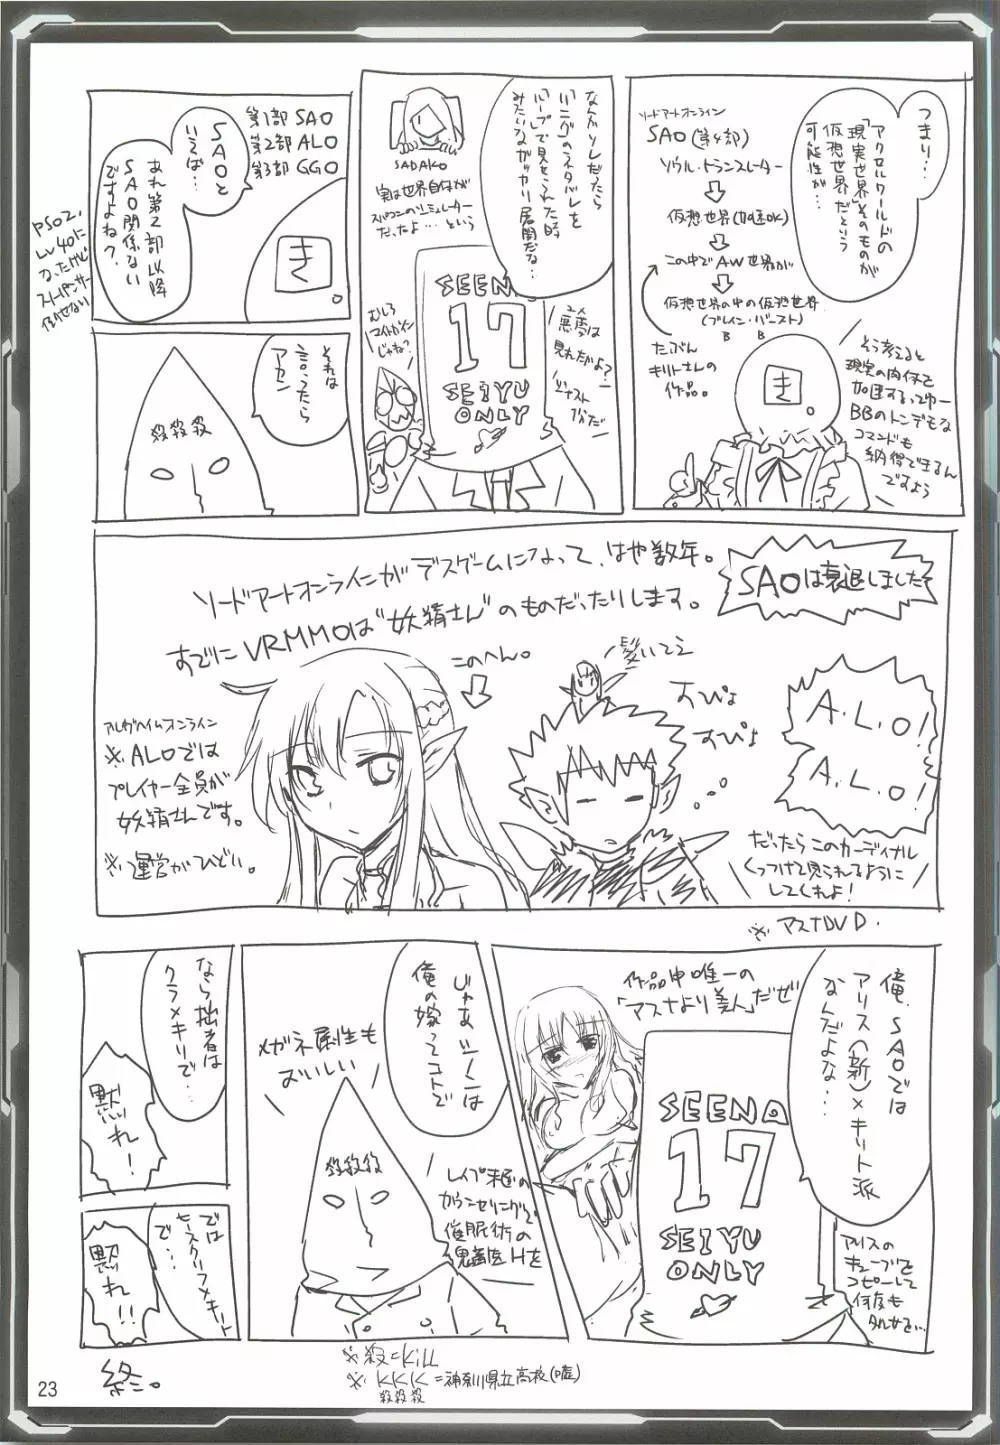 つまり…
アクセルワールドの
「現実世界」そのものが
仮想世界だという
可能性が…
ソードアートオンライン
SAO(第4部)
ソウル・トランスレーター
仮想世界(加速OK)
この中でAW世界が
仮想世界の中の仮想世界
(ブレイン・バースト)
B B
たぶん
キリトさんの
作品。
き。
そう考えると
現実の肉体で
加速するってゆー
BBのトンデモな
コマンドも
納得できるん
ですよう
なんかソレだったら
「リング」のネタバレを
「ループ」で見せられた時
みたいなガッカリ展開だな…
SADAKO
実は世界自体が
スパコンのシミュレーター
だったよ…という
SEENA
17
SEIYU
ONLY
むしろ
マイトガイン
じゃね?
悪夢は
見れたかよ?
ジャスト
1分だ
第1部 SAO
第2部 ALO
第3部 GGO
SAOと
いえば…
あれ第2部以降
SAO関係ない
ですよね?
き。
PSO2、
Lv40に
なったけど
それは
言ったら
アカン
殺殺殺
SAOは衰退しました
ソードアートオンラインがデスゲームになって、はや数年。
すでにVRMMOは"妖精さん"のものだったりします。
このへん。
髪いてえ
すぴょ
すぴょ
A.L.O!
A.L.O!
アルヴヘイムオンライン
※ALOでは
プレイヤー全員が
妖精さんです。
※運営がひどい。
だったらこのカーディナル
くっつけて見られるように
してくれよ!
※アスナDVD.
俺、SAOでは
アリス(新)×キリト派
なんだよな…
作品中唯一の
「アスナより美人」だぜ
SEENA
17
SEIYU
ONLY
アリスの
キューブを
コピーして
何度も
じゃあシノンは
俺の嫁ってコトで
メガネ属性も
おいしい
殺殺殺
レイプ未遂の
カウンセリングで
催眠術の
鬼畜医Hを
なら拙者は
クラ×キリで…
黙れ!
では
ヒースクリフ×キリト
で…
黙れ!!
※殺=Kill
※KKK=神奈川県立高校(嘘)
殺殺殺
終。
23